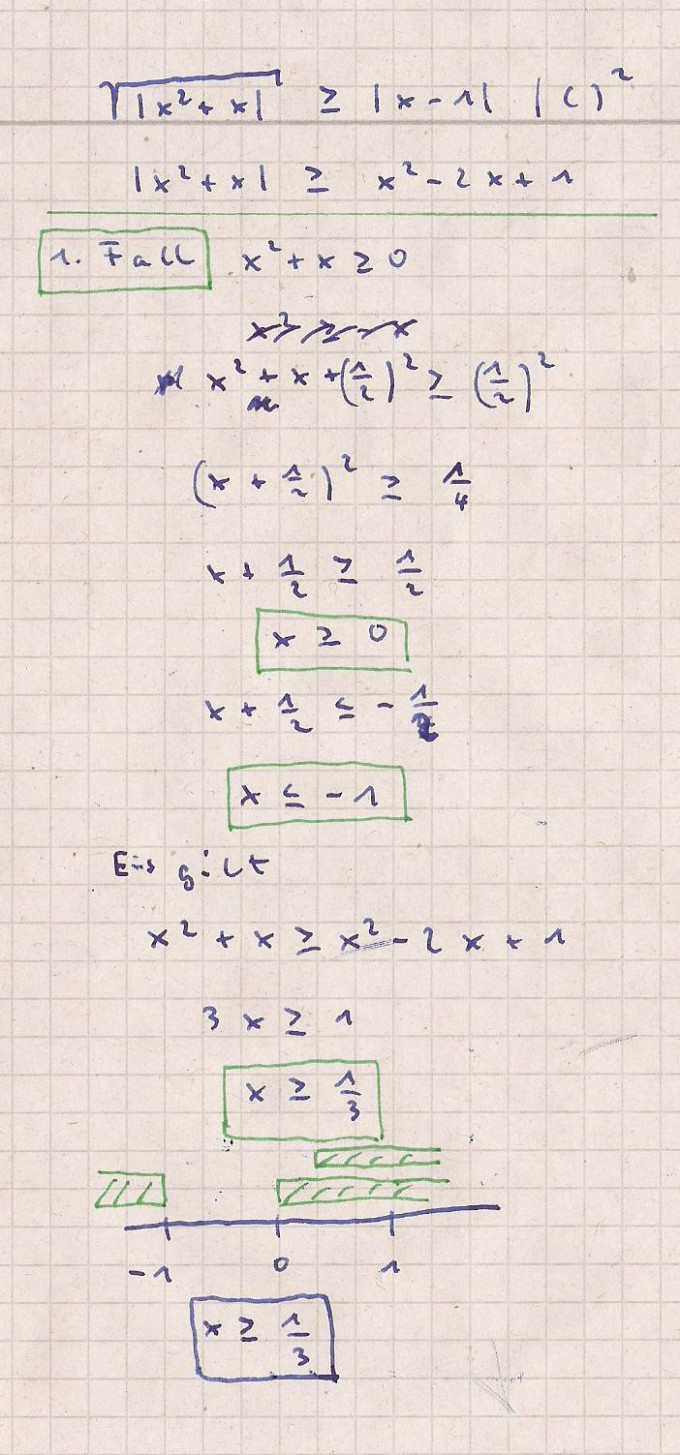 √|x² + x| ≥ |x - 1| | ( )²
|x² + x| ≥ x² - 2x + 1
1. Fall x² + x ≥ 0
x² ≥ - x
x² + x + (1/2)² ≥ (1/2)²
(x + 1/2)² ≥ 1/4
x + 1/2 ≥ 1/2
x ≥ 0
x + 1/2 ≤ - 1/2
x ≤ - 1
gilt
x² + x ≥ x² - 2x + 1
3x ≥ 1
x ≥ 1/3
-1 0 1
x ≥ 1/3